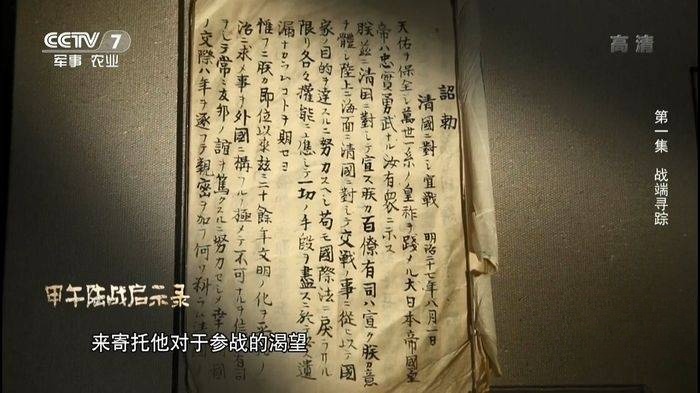 CCTV 7
军事 农业
高清
第一集 战端寻踪
詔勅
清國ニ對シ宣戰 明治二十七年八月一日
天佑ヲ保全シ萬世一系ノ皇祚ヲ踐メル大日本帝國皇
帝ハ忠實勇武ナル汝有衆ニ示ス
朕茲ニ清国ニ對シテ宣ス朕カ百僚有司ハ宜ク朕カ意
ヲ體シ陸上ニ海面ニ清國ニ對シテ交戰ノ事ニ從ヒ以テ國
家ノ目的ヲ達スルニ努力スヘシ苟モ國際法ニ戻ラサル
限リ各々權能ニ應シテ一切ノ手段ヲ盡スニ於テ必ス遺
漏ナカラムコトヲ期セヨ
惟フニ朕カ即位以來茲ニ二十餘年文明ノ化ヲ平和ノ
治ニ求メ事ヲ外國ニ構フルノ極メテ不可ナルヲ信シ有司
ヲシテ常ニ友邦ノ誼ヲ篤クスルニ努力セシメ幸
ノ交際ハ年ヲ逐フテ親密ヲ加フ何ソ料ラム
甲午陆战启示录
来寄托他对于参战的渴望